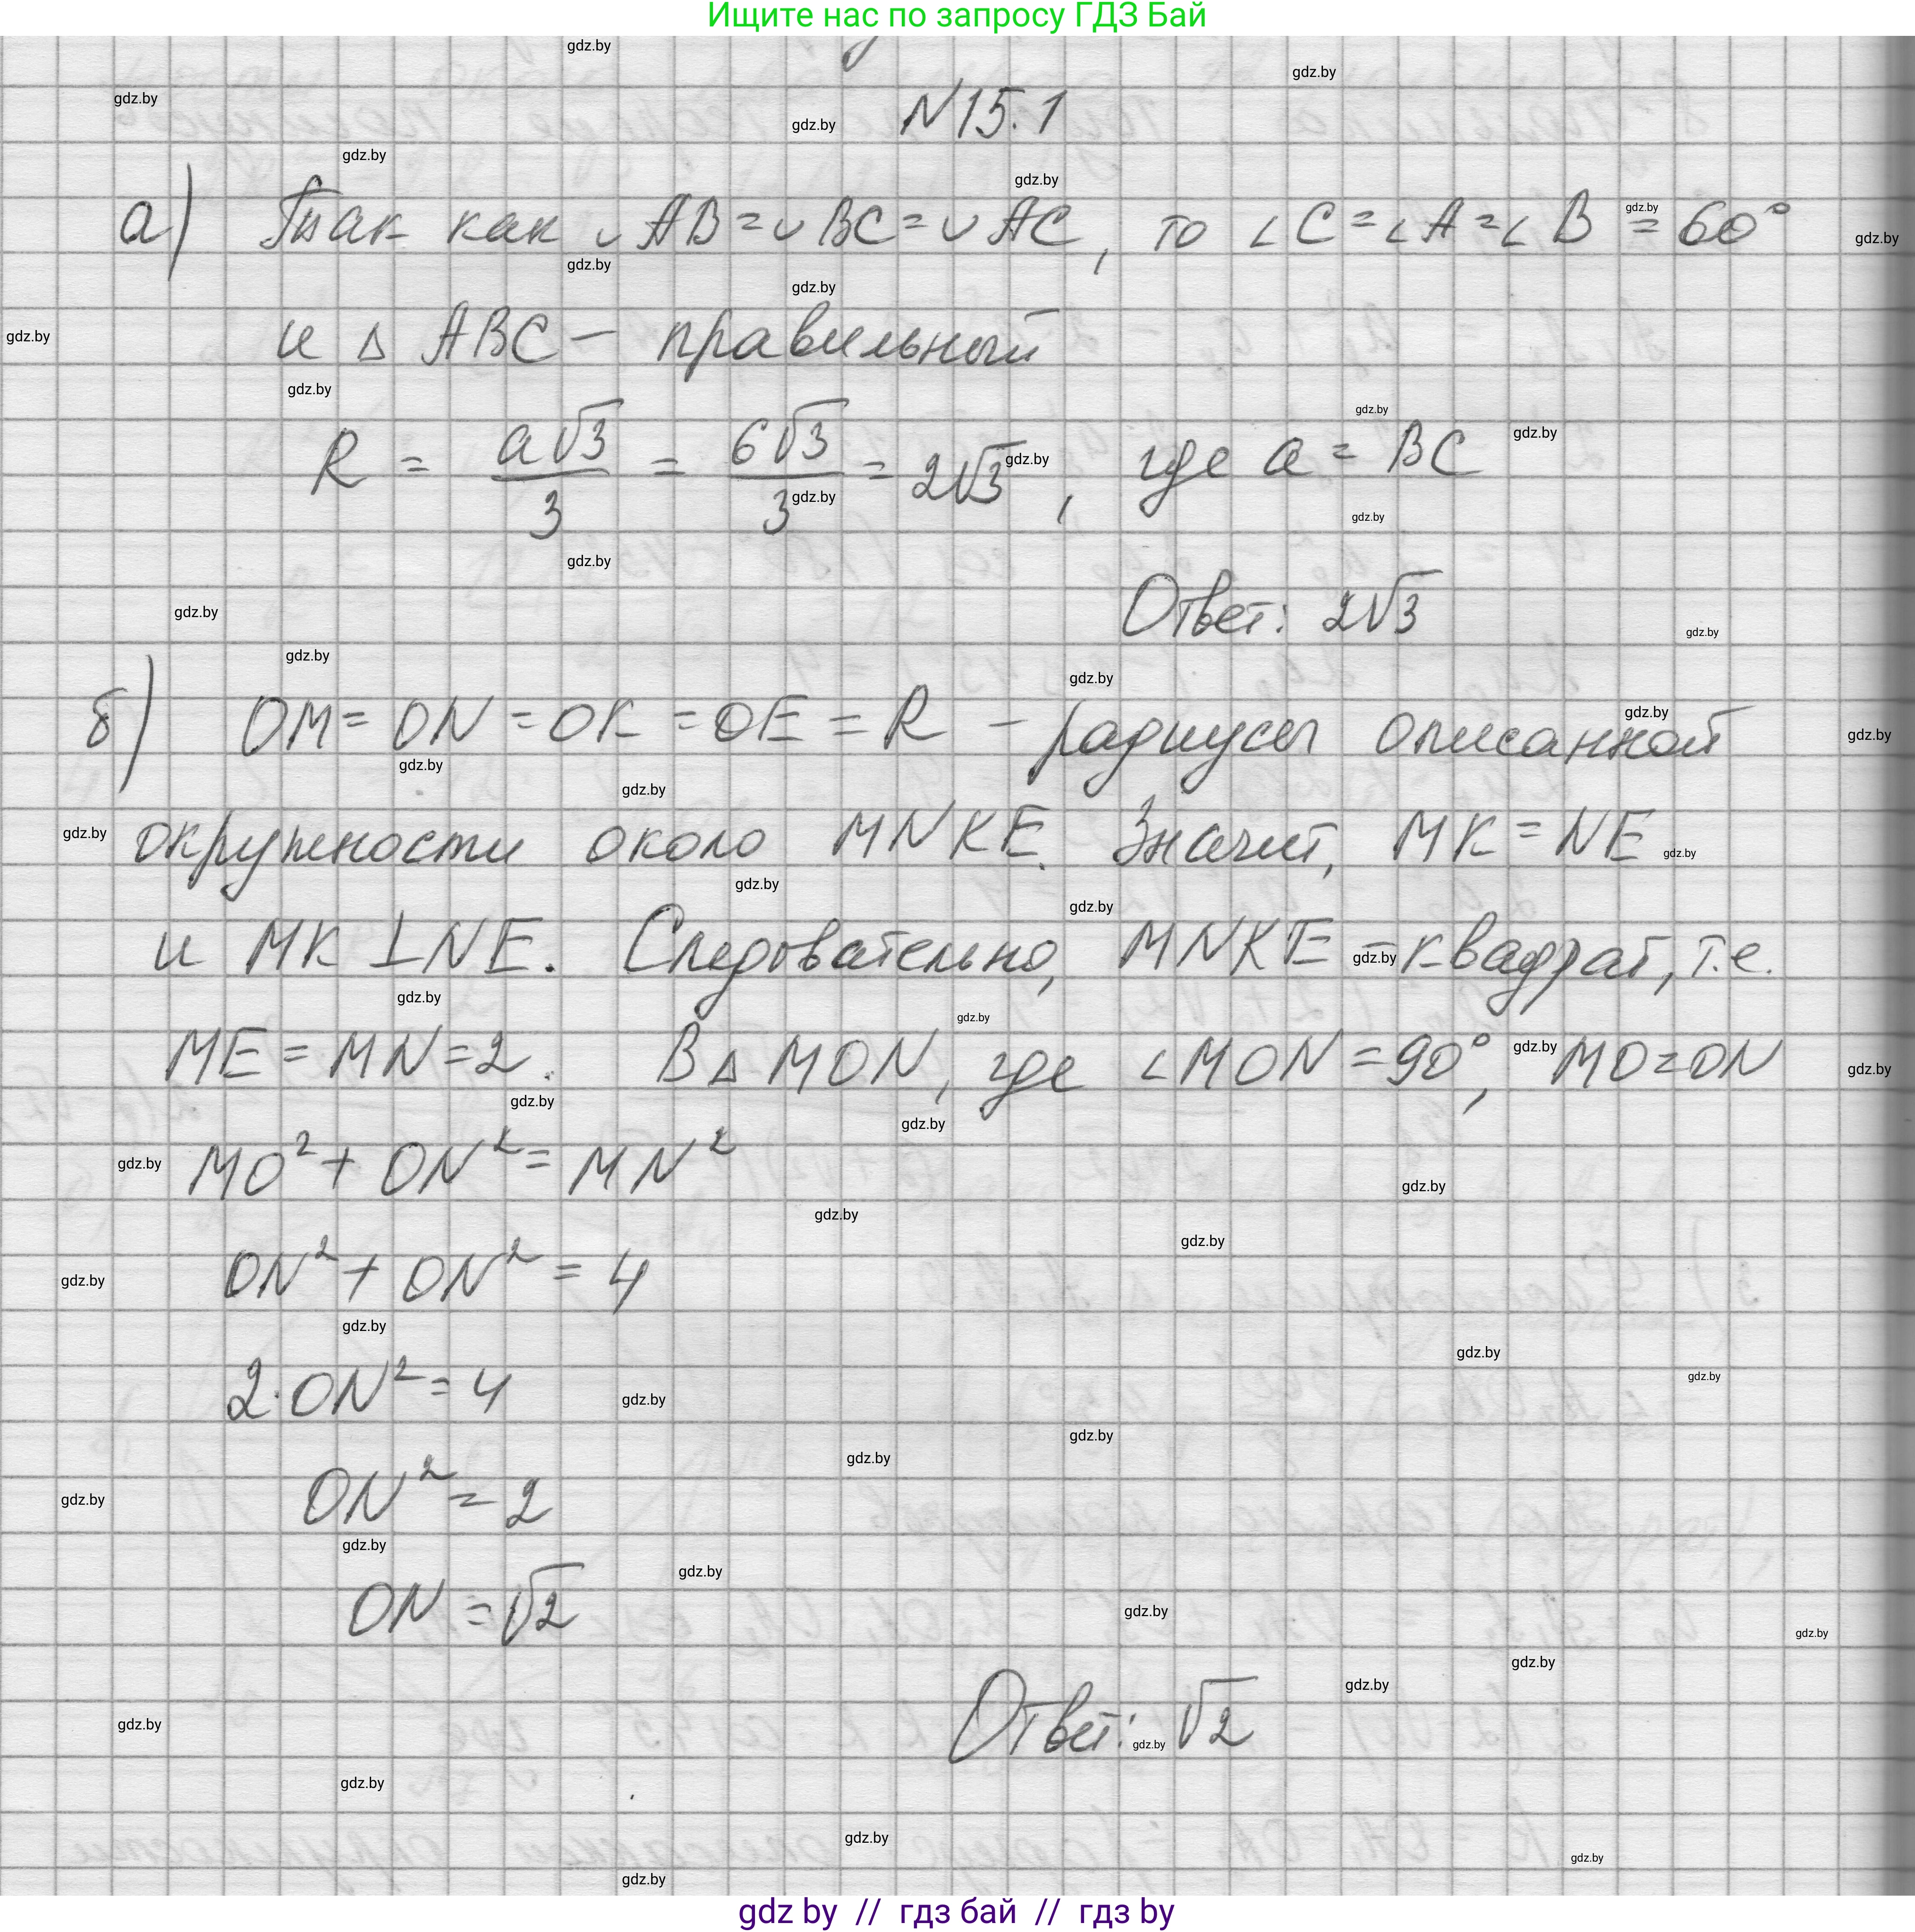 Ищите нас по запросу ГДЗ Бай
N 15.1
а) Так как ∪AB = ∪BC = ∪AC, то ∠C = ∠A = ∠B = 60°
и △ABC – правильный
R = a√3/3 = 6√3/3 = 2√3, где a = BC
Ответ: 2√3
б) OM = ON = OK = OE = R – радиусы описанной
окружности около MNKE. Значит, MK = NE
и MK ⊥ NE. Следовательно, MNKE – квадрат, т.е.
ME = MN = 2. В △MON, где ∠MON = 90°, MO = ON
MO² + ON² = MN²
ON² + ON² = 4
2·ON² = 4
ON² = 2
ON = √2
Ответ: √2
gdz by // гдз бай // гдз by